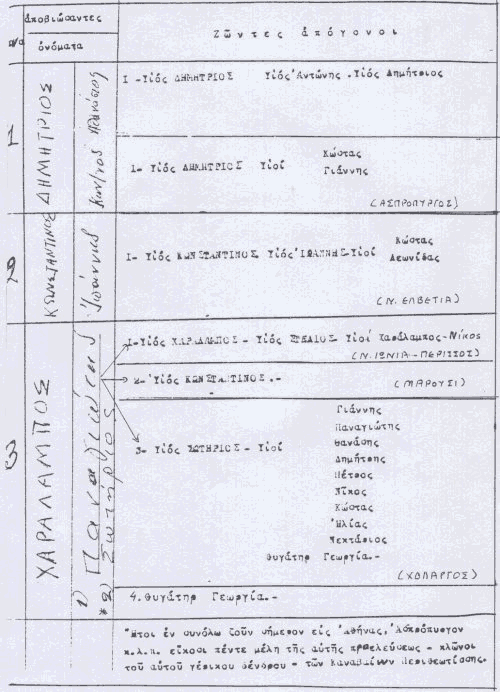 π/α
ἀποβιώσαντες
ὀνόματα
Ζῶντες ἀπόγονοι
1
ΔΗΜΗΤΡΙΟΣ
1 -Υἱός ΔΗΜΗΤΡΙΟΣ Υἱός Ἀντώνης .Υἱός Δημήτριος
1- Υἱός ΔΗΜΗΤΡΙΟΣ Υἱοί
Κώστας
Γιάννης
(ΑΣΠΡΟΠΥΡΓΟΣ)
2
ΚΩΝΣΤΑΝΤΙΝΟΣ
Ἰωάννης
1- Υἱός ΚΩΝΣΤΑΝΤΙΝΟΣ Υἱός Ἰ̓ΩΑΝΝΗΣ-Υἱοί
Κώστας
Λεωνίδας
(Ν. ΕΛΒΕΤΙΑ)
3
ΧΑΡΑΛΑΜΠΟΣ
1) Παναγιώτης
*2) Σωτήριος
1-Υἱός ΧΑΡΑΛΑΜΠΟΣ - Υἱός ΣΤΕΛΙΟΣ Υἱοί Χαράλαμπος-Νίκος
(Ν. ΙΩΝΙΑ - ΠΕΡΙΣΣΟΣ)
2- Υἱός ΚΩΝΣΤΑΝΤΙΝΟΣ.-
(ΜΑΡΟΥΣΙ)
3- Υἱός ΣΩΤΗΡΙΟΣ - Υἱοί
Γιάννης
Παναγιώτης
Θανάσης
Δημήτρης
Πέτρος
Νῖκος
Κώστας
Ἠλίας
Νεκτάριος
Θυγάτηρ Γεωργία.-
(ΧΟΛΑΡΓΟΣ)
4. Θυγάτηρ Γεωργία.-
Ἤτοι ἐν συνόλω ζοῦν σήμερον εἰς Ἀθήνας, Ἀσπρόπυργον
κ.λ.π. εἴκοσι πέντε μέλη τῆς αὐτῆς προελεύσεως - κλῶνοι
τοῦ αὐτοῦ γέρικου δένδρου - τῶν Καναβαίων Περιθωτίσσης.